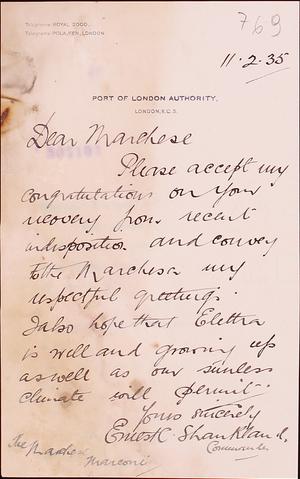 Telephone: ROYAL 2000.
Telegrams: POLA, KEN, LONDON
769
11·2·35
PORT OF LONDON AUTHORITY,
LONDON, E.C.3.
Dear Marchese
Please accept my
congratulations on your
recovery from recent
indisposition and convey
to the Marchesa my
respectful greetings.
I also hope that Elettra
is well and growing up
as well as our sunless
climate will permit.
Yours sincerely
Ernest C. Shankland,
Commander
The Marchese
Marconi